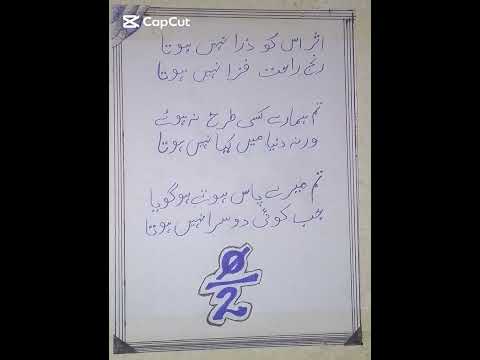 CapCut
اثر اس کو ذرا نہیں ہوتا
رنج راحت فزا نہیں ہوتا
تم ہمارے کسی طرح نہ ہوئے
ورنہ دنیا میں کیا نہیں ہوتا
تم میرے پاس ہوتے ہو گویا
جب کوئی دوسرا نہیں ہوتا
φ
2